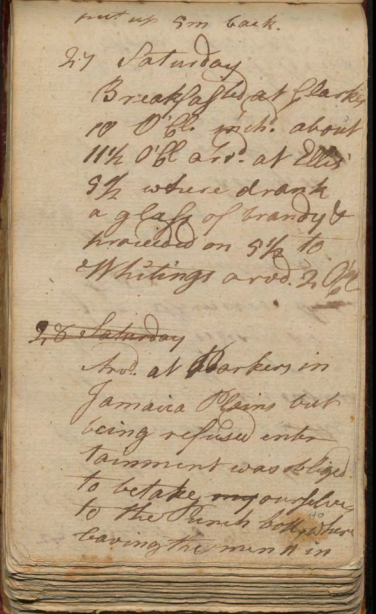 put up 5m back.
27 Saturday
Breakfasted at Clarks
10 O'Cl. inch. about
11½ O'Cl arvd. at Ellis'
5½ where drank
a glass of brandy &
proceeded on 5½ to
Whitings arvd. 2 O'Cl
28 Saturday
Arvd. at Parkers in
Jamaica Plains but
being refused enter
tainment was obliged
to betake my ourselves
to the Punch bowl, where
leaving the men in